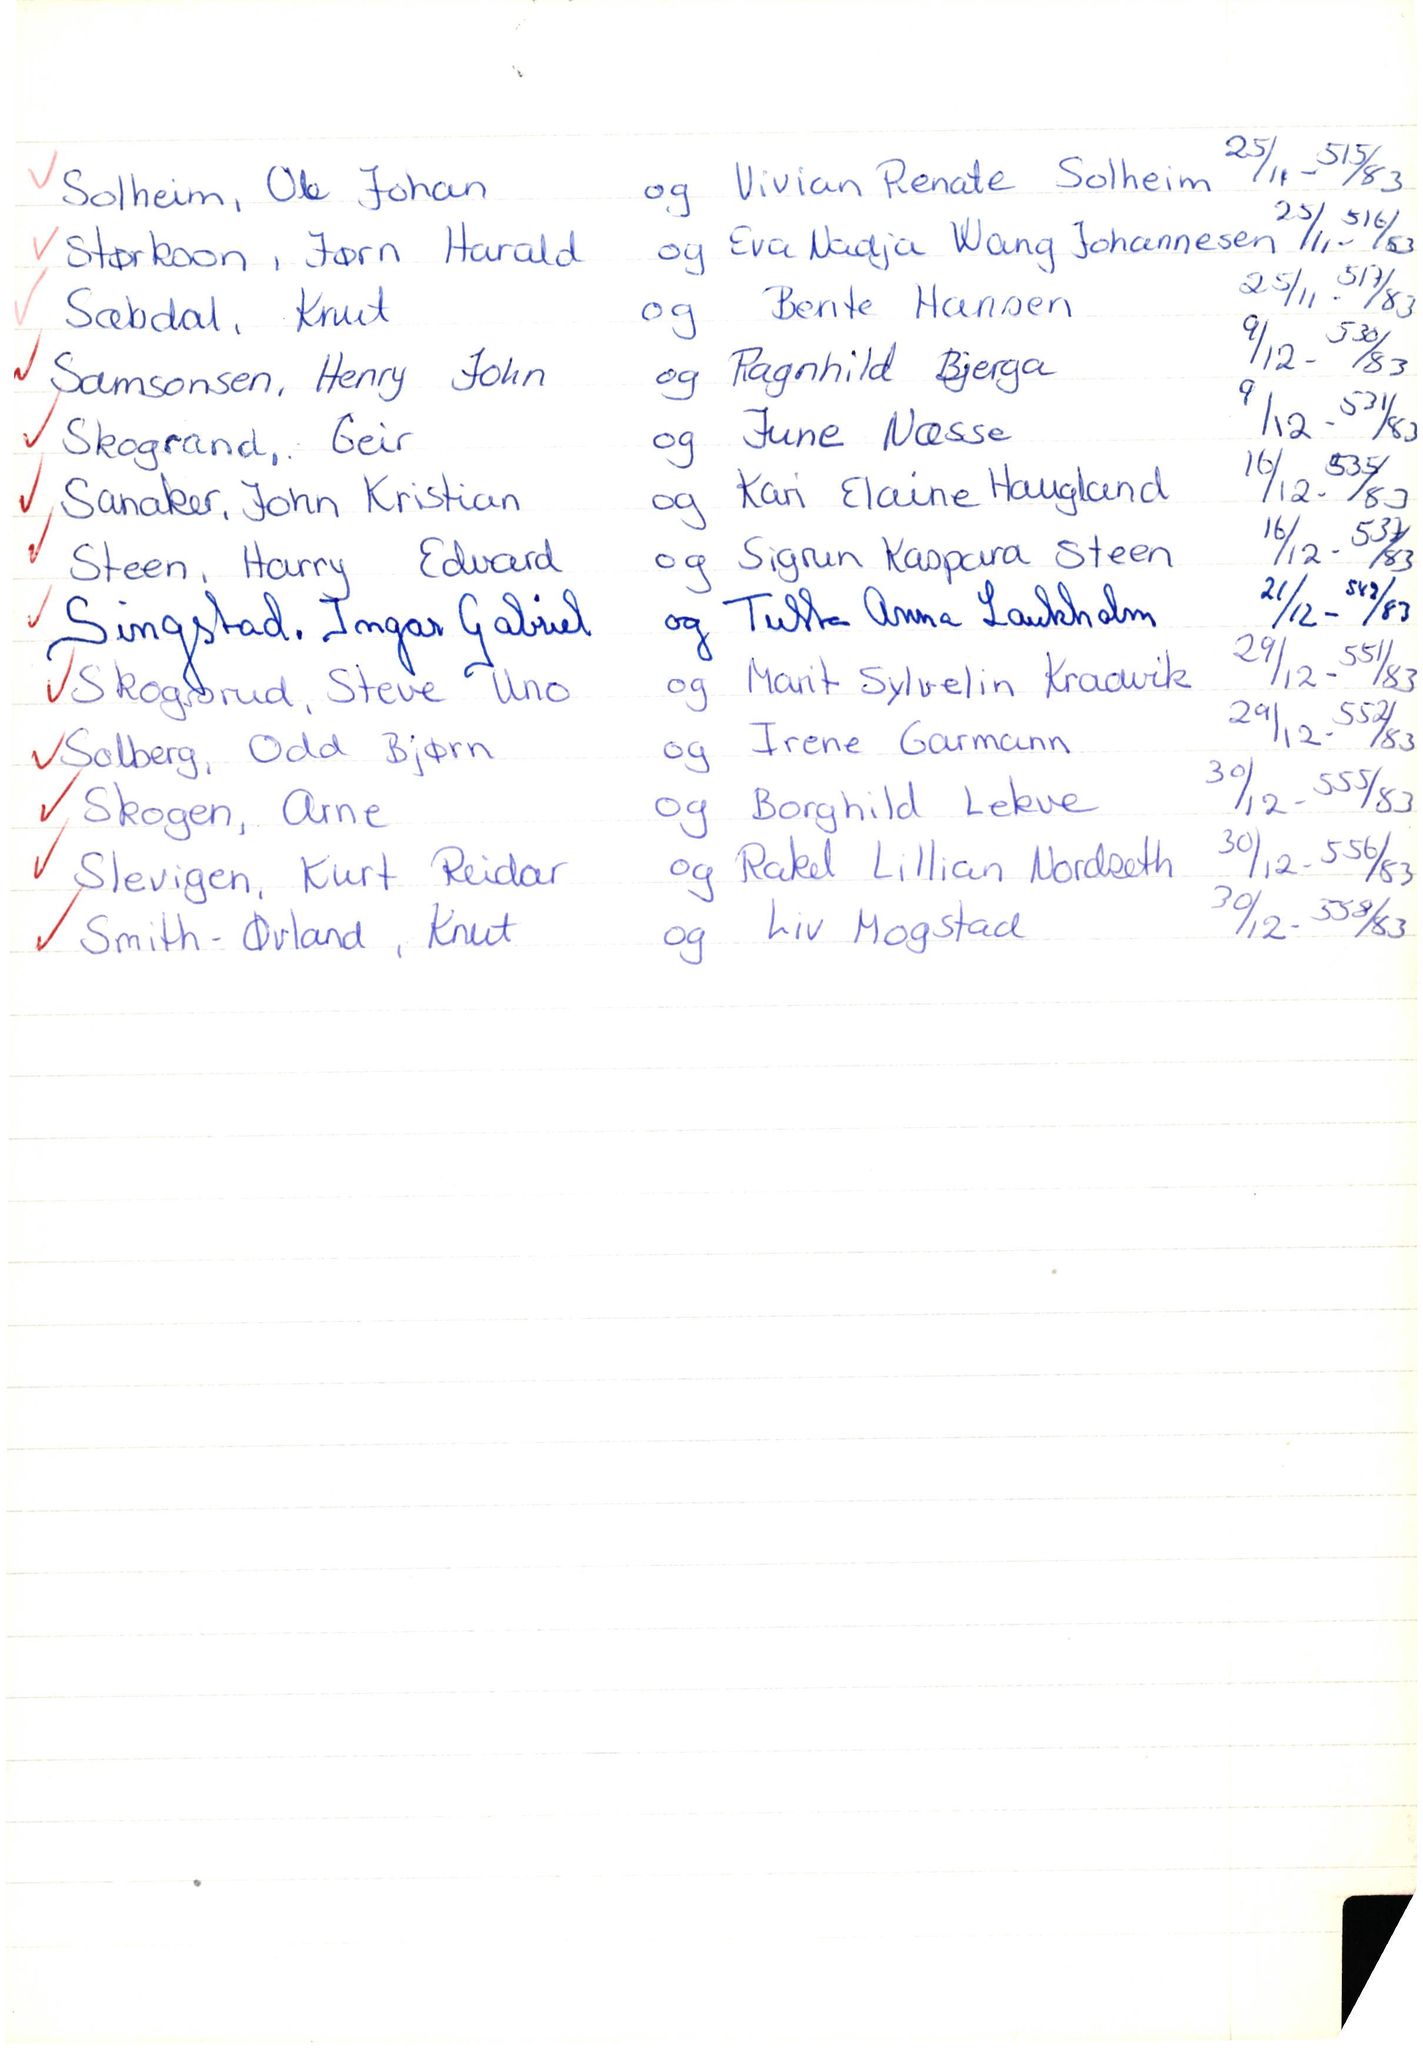 Solheim, Ole Johan og Vivian Renate Solheim 25/11 - 515/83
Størkson, Jørn Harald og Eva Nadja Wang Johannesen 25/11 - 516/83
Sæbdal, Knut og Bente Hansen 25/11 - 517/83
Samsonsen, Henry John og Ragnhild Bjerga 9/12 - 530/83
Skogrand, Geir og June Næsse 9/12 - 531/83
Sanaker, John Kristian og Kari Elaine Haugland 16/12 - 535/83
Steen, Harry Edvard og Sigrun Kaspara Steen 16/12 - 537/83
Singstad, Ingar Gabriel og Anna Laukholm 21/12 - /83
Skogsrud, Steve Uno og Marit Sylvelin Kradvik 29/12 - 551/83
Solberg, Odd Bjørn og Irene Garmann 29/12 - 552/83
Skogen, Arne og Borghild Lekve 30/12 - 555/83
Slevigen, Kurt Reidar og Rakel Lillian Nordseth 30/12 - 556/83
Smith-Ørland, Knut og Liv Mogstad 30/12 - 558/83